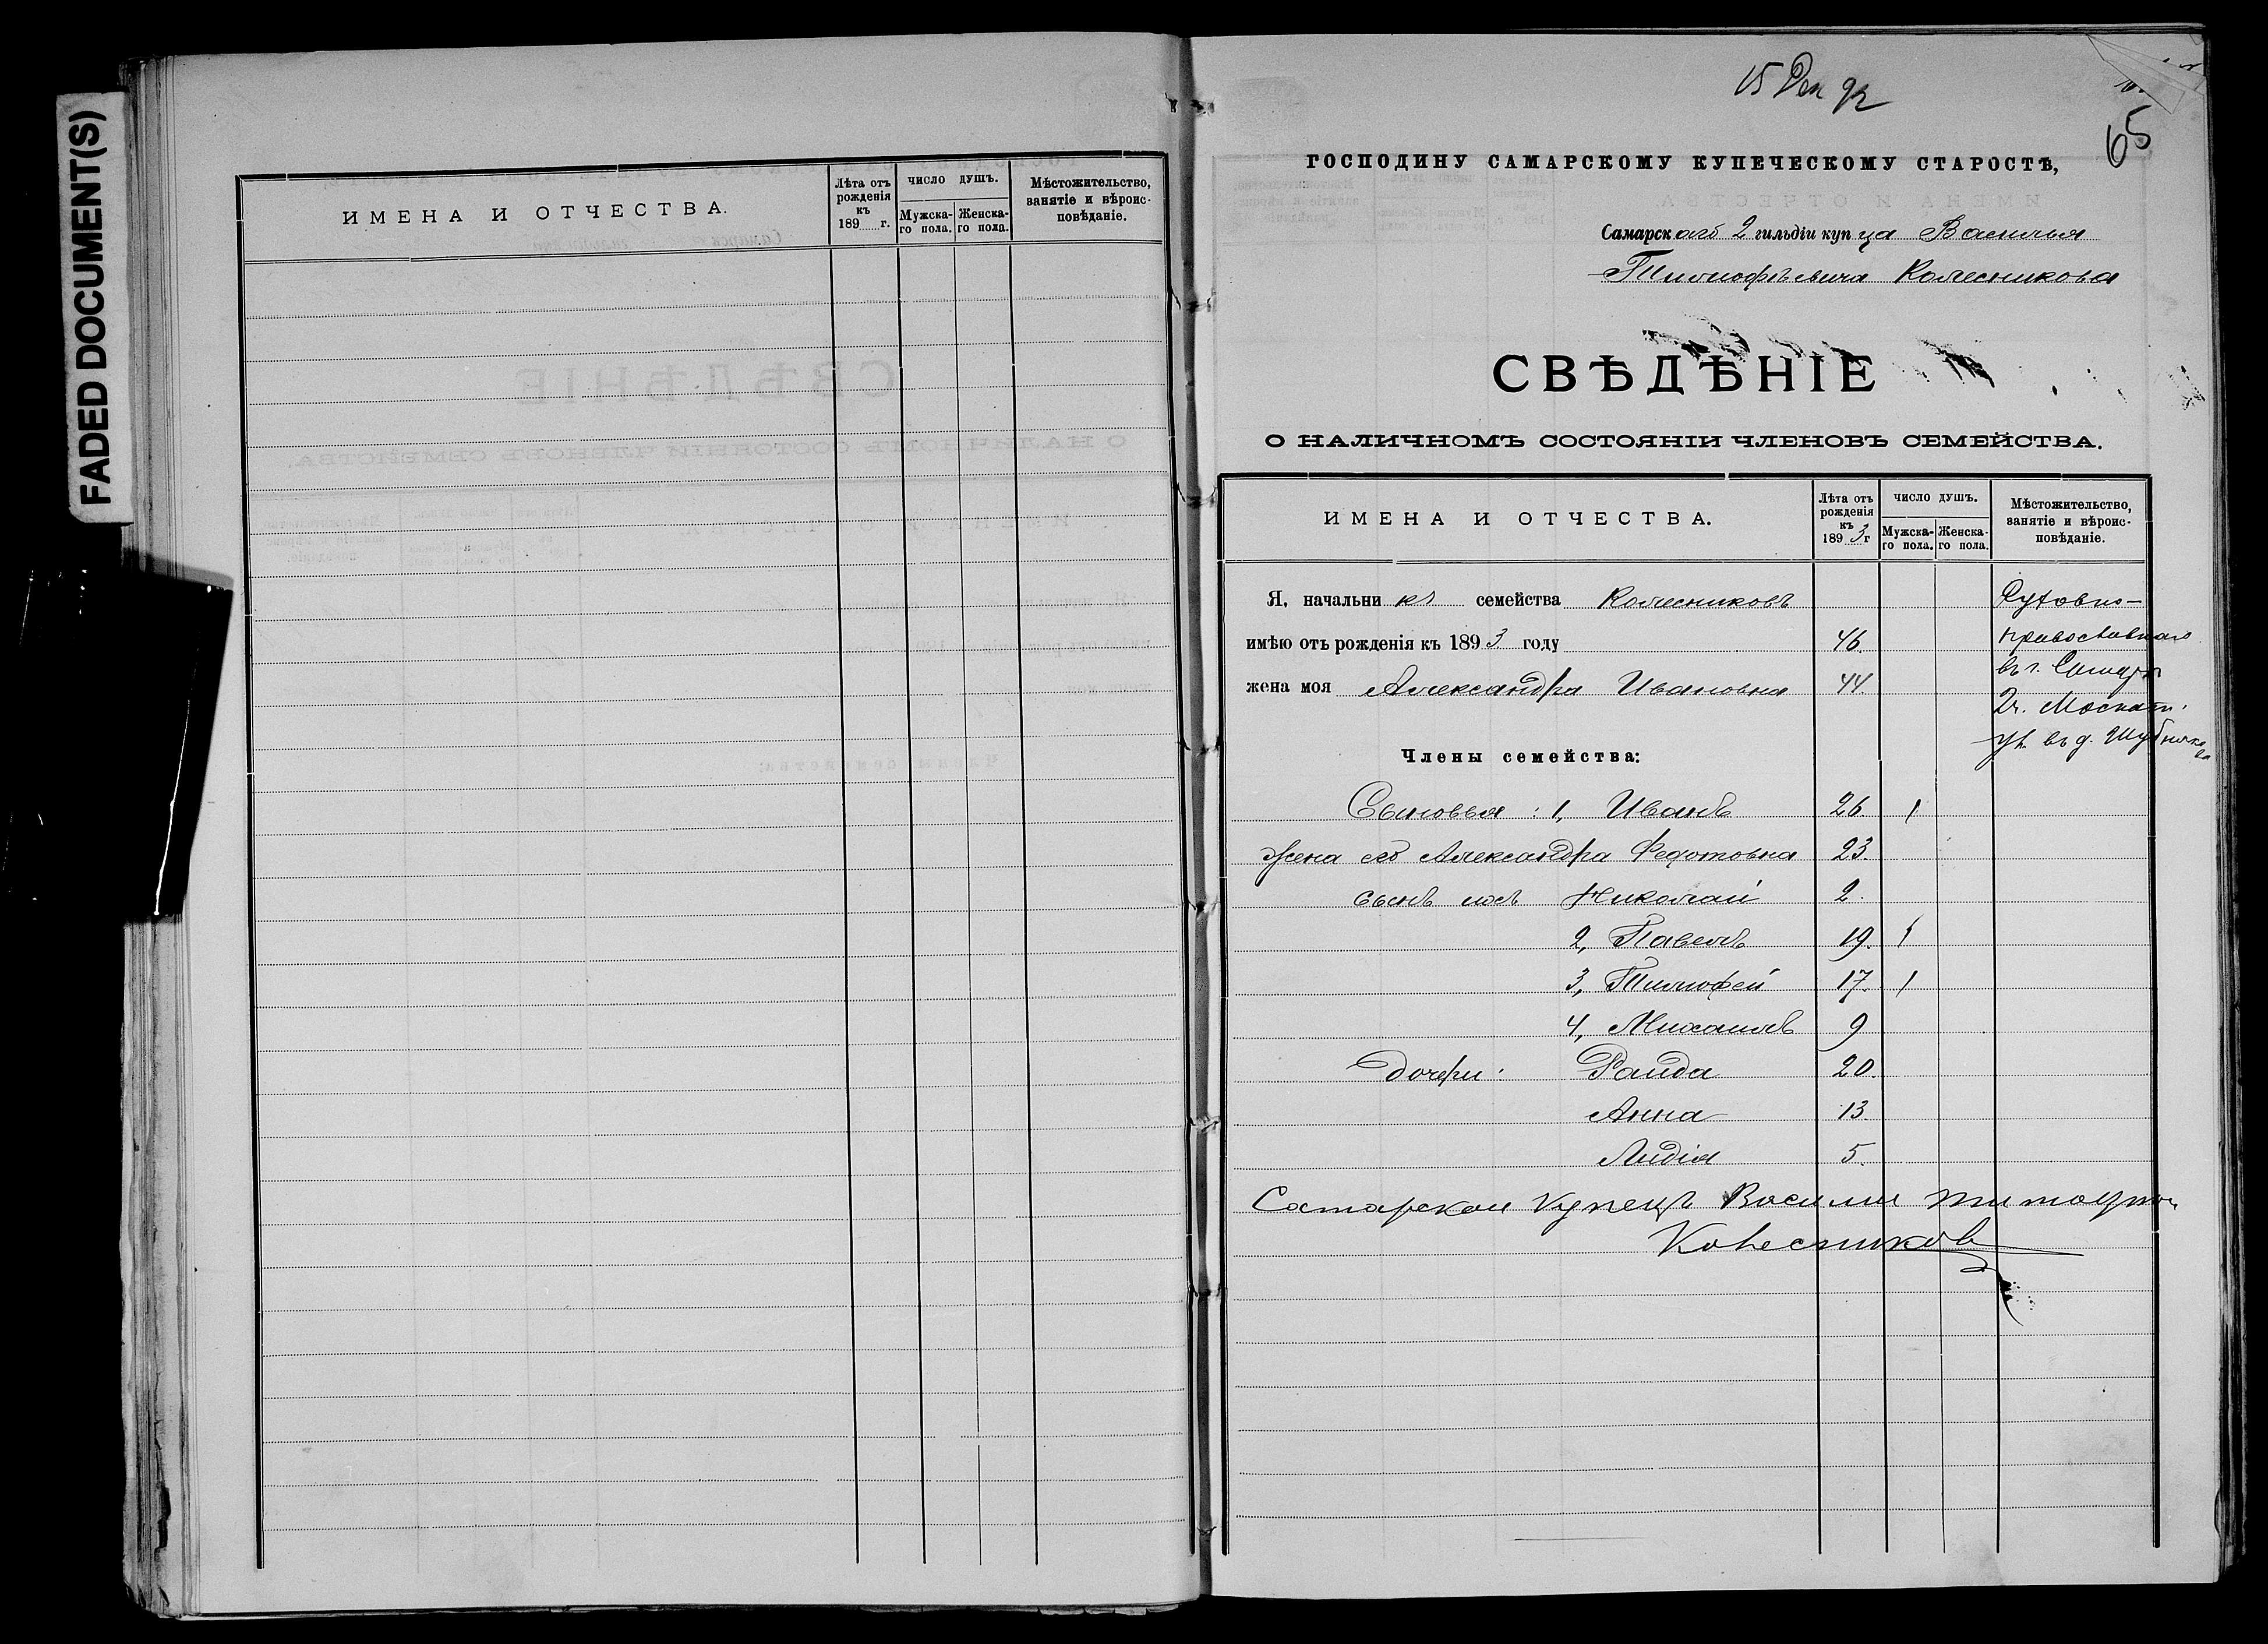 FADED DOCUMENT(S)
ИМЕНА И ОТЧЕСТВА.
Лѣта отъ рожденія къ 189 г.
ЧИСЛО ДУШЪ.
Мужска-го пола.
Женска-го пола.
Мѣстожительство, занятіе и вѣроис-повѣданіе.
15 Дек 92
65
ГОСПОДИНУ САМАРСКОМУ КУПЕЧЕСКОМУ СТАРОСТѢ,
Самарскаго 2 гильдіи купца Василья
Тимофѣевича Колесникова
СВѢДѢНІЕ
О НАЛИЧНОМЪ СОСТОЯНІИ ЧЛЕНОВЪ СЕМЕЙСТВА.
ИМЕНА И ОТЧЕСТВА.
Лѣта отъ рожденія къ 1893 г
ЧИСЛО ДУШЪ.
Мужска-го пола.
Женска-го пола.
Мѣстожительство, занятіе и вѣроис-повѣданіе.
Я, начальникъ семейства Колесниковъ
имѣю отъ рожденія къ 1893 году 46.
жена моя Александра Ивановна 44.
православнаго
въ г. Самарѣ
2ч. Москат.
ул. въ д.
Члены семейства:
Сыновья: 1, Иванъ 26. 1
Жена его Александра Федотовна 23.
сынъ ихъ Николай 2.
2, Павелъ 19. 1
3, Тимофей 17. 1
4, Михаилъ 9
Дочери: Раида 20.
Анна 13.
Лидія 5.
Самарской Купецъ Василий
Колесников